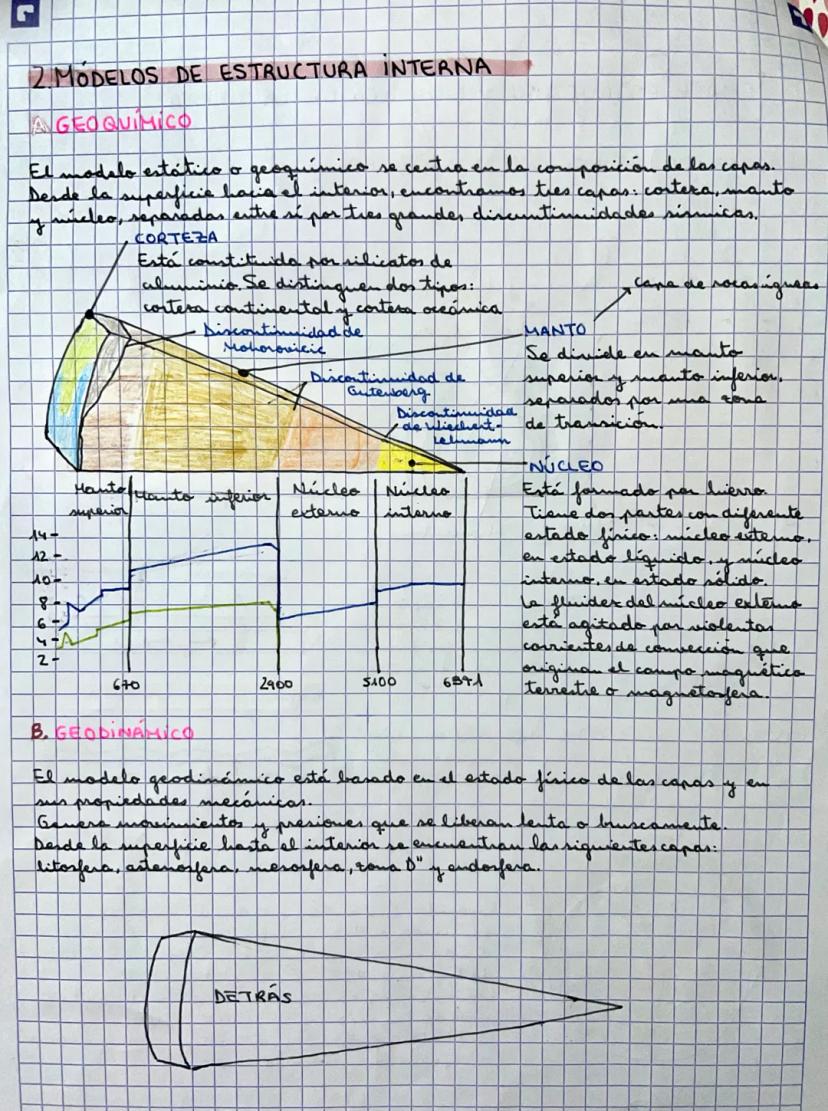 2. MÓDELOS DE ESTRUCTURA INTERNA
A GEOQUÍMICO
El modelo estático o geoquímico se centra en la composición de las capas.
Desde la superficie hacia el interior, encontramos tres capas: corteza, manto
y núcleo, separadas entre sí por tres grandes discuntinuidades sísmicas.
CORTEZA
Está constituida por silicatos de
aluminio. Se distinguen dos tipos:
corteza continental y corteza oceánica
capa de rocas ígneas
Discontinuidad de
Mohorovicic
MANTO
Se divide en manto
superior y manto inferior,
separados por una zona
de transición.
Discontinuidad de
Gutenberg
Discontinuidad
de Wiechert-
Lehmann
NÚCLEO
Está formado por hierro.
Tiene dos partes con diferente
estado físico: núcleo externo,
en estado líquido, y núcleo
interno, en estado sólido.
La fluidez del núcleo externo
está agitado por violentas
corrientes de convección que
originan el campo magnético
terrestre o magnetosfera.
Manto superior
Manto inferior
Núcleo externo
Núcleo interno
14-
12-
10-
8-
6-
4-
2-
670 2900 5100 6371
B. GEODINÁMICO
El modelo geodinámico está basado en el estado físico de las capas y en
sus propiedades mecánicas.
Genera movimientos y presiones que se liberan lenta o bruscamente.
Desde la superficie hasta el interior se encuentran las siguientes capas:
litosfera, astenosfera, mesosfera, zona D" y endosfera.
DETRÁS